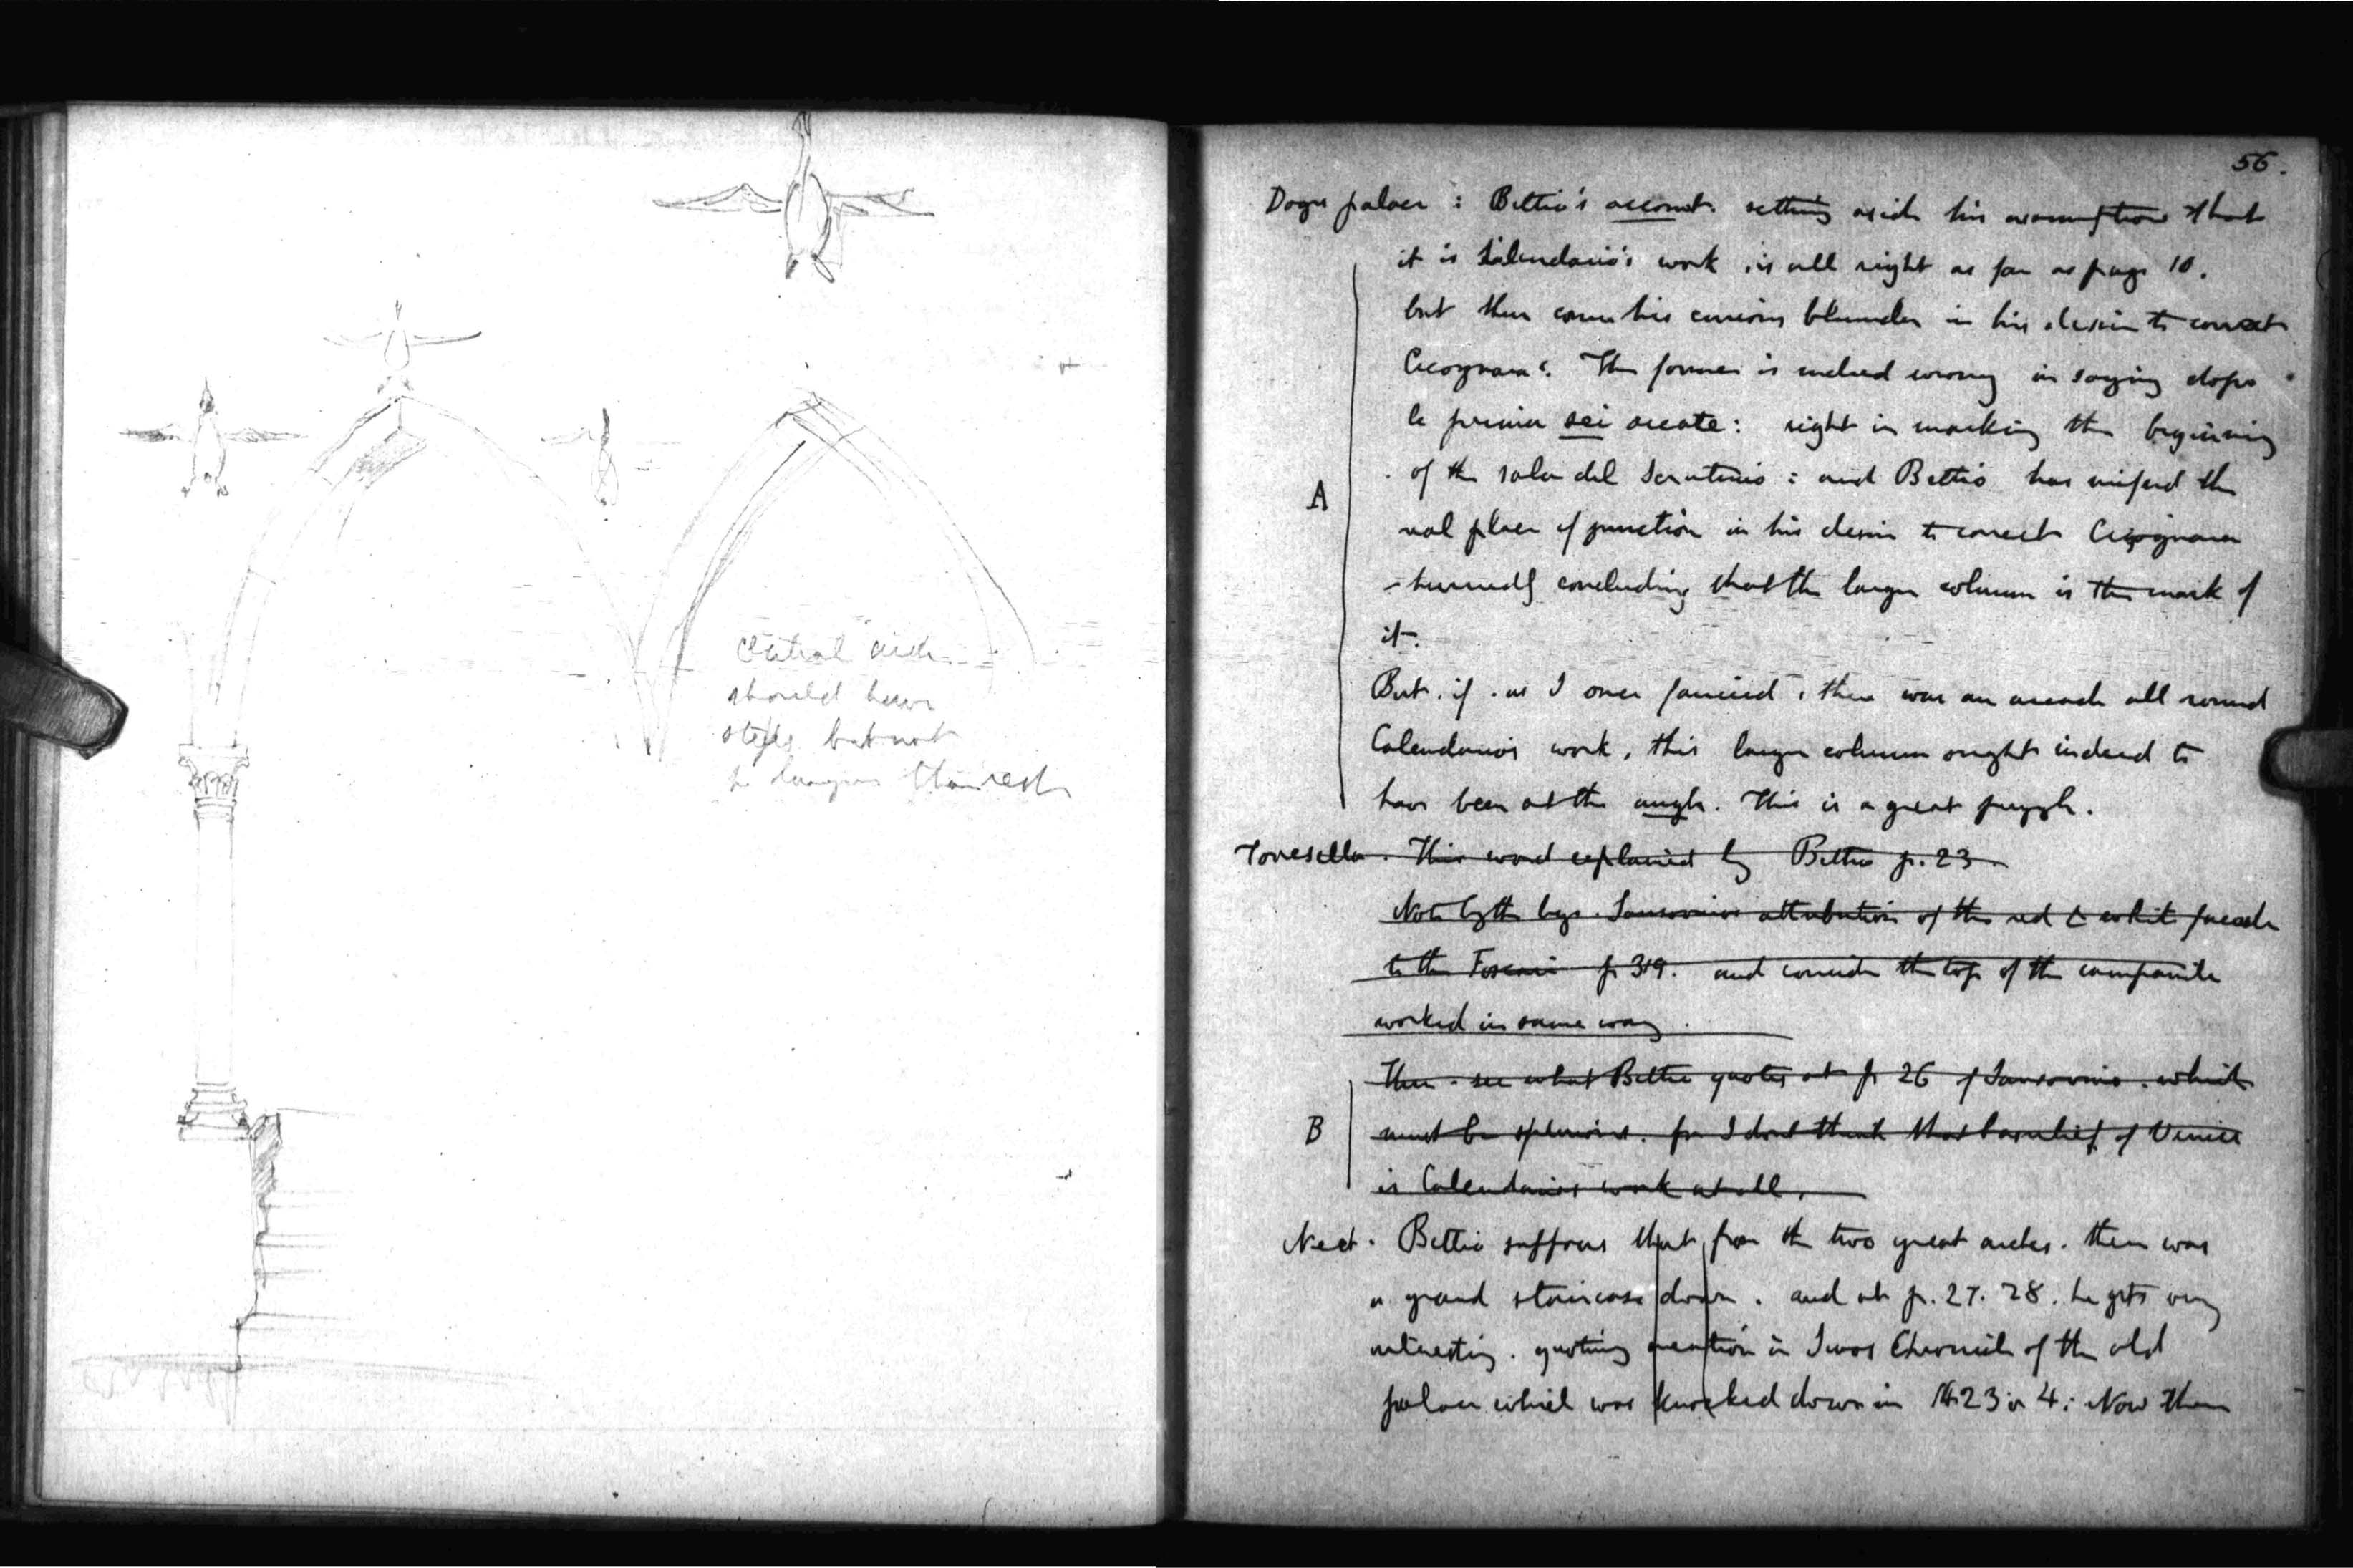 Central arch
should have
steps but not
be longer than rest
56.
Doges palace : Bettio's account. setting aside his assumption that
it is Calendario's work, is all right as far as page 10.
but then comes his curious blunder in his desire to correct
Cicognara. The former is indeed wrong in saying dopo
le prime sei arcate: right in marking the beginning
of the sala del Scrutinio : and Bettio has missed the
real place of junction in his desire to correct Cicognara
concluding that the larger column is the mark of
it.
A
But, if, as I once fancied, there was an arcade all round
Calendario's work, this larger column ought indeed to
have been at the angle. This is a great puzzle.
Toresella. This word explained by Bettio p. 23
Note by the bye. Sansovino's attribution of the red & white facade
to the Foscari p 319. and consider the top of the campanile
worked in same way.
Then see what Bettio quotes at p 26 of Sansovino. which
B
must be spurious. for I dont think that basrelief of Venice
is Calendario's work at all.
Next. Bettio suppose that from the two great arches. there was
a grand staircase down. and at p. 27. 28. he gets very
interesting. quoting mention in Chronicle of the old
palace which was knocked down in 1423 or 4: Now then